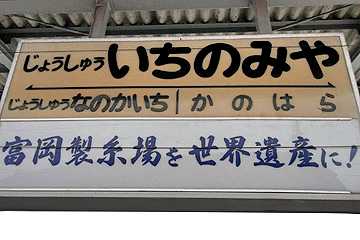 じょうしゅう いちのみや
じょうしゅうなのかいち|かのはら
富岡製糸場を世界遺産に!